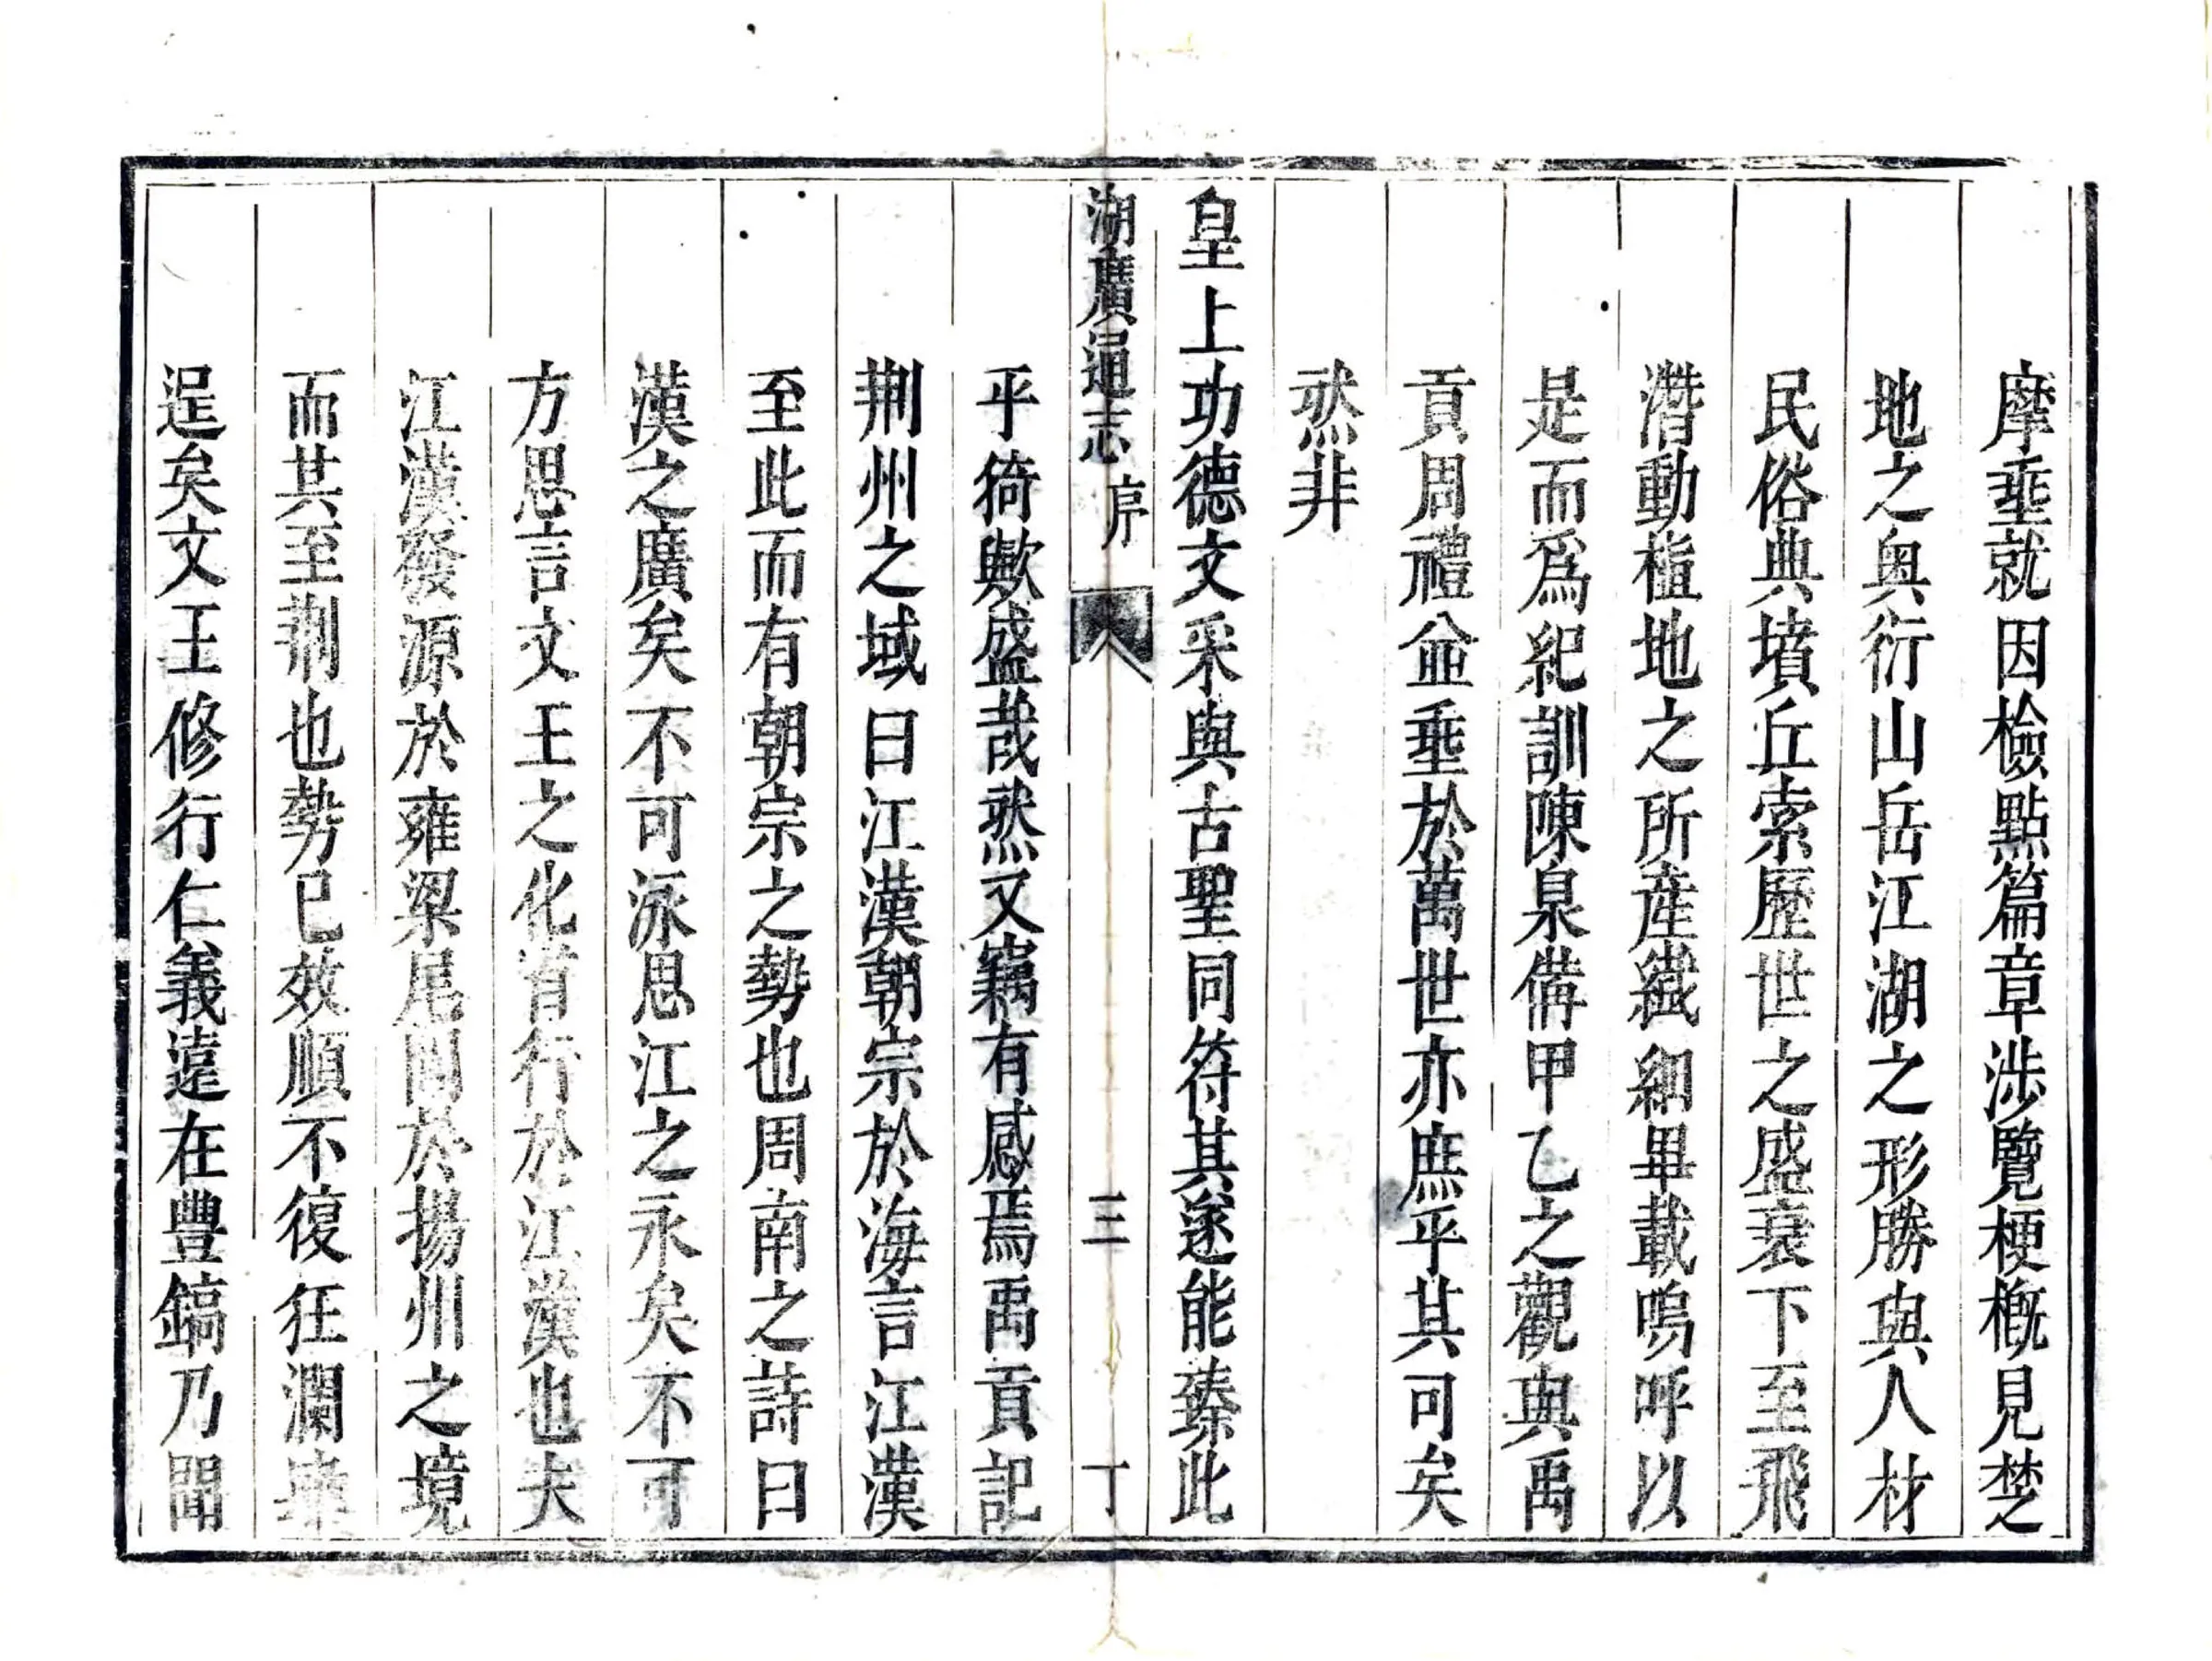 摩垂就因檢點篇章涉覽梗槪見楚
地之奥衍山岳江湖之形勝與人材
民俗典墳丘索歷世之盛衰下至飛
潛動植地之所産纎細畢載嗚呼以
是而爲紀訓陳臬備甲乙之觀與禹
貢周禮並垂於萬世亦庶乎其可矣
然非
皇上功德文采與古聖同符其遂能臻此
湖廣通志 序 三 丁
乎猗歟盛哉然又竊有感焉禹貢記
荆州之域曰江漢朝宗於海言江漢
至此而有朝宗之勢也周南之詩曰
漢之廣矣不可泳思江之永矣不可
方思言文王之化首行於江漢也夫
江漢發源於雍梁尾閭於揚州之境
而其至荆也勢已效順不復狂瀾
逞矣文王修行仁義遠在豐鎬乃聞